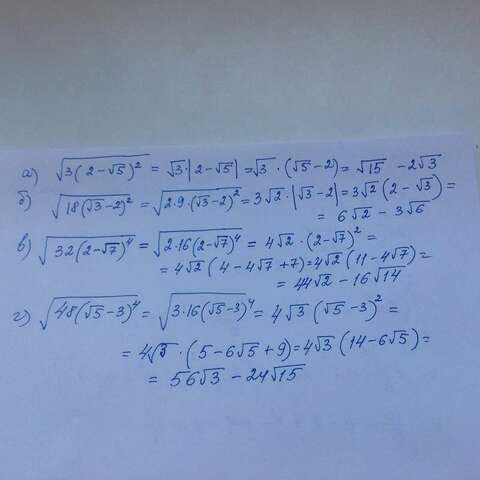 а) √3(2-√5)² = √3·|2-√5| = √3·(√5-2) = √15 - 2√3
б) √18(√3-2)² = √2·9·(√3-2)² = 3√2·|√3-2| = 3√2(2-√3) =
= 6√2 - 3√6
в) √32(2-√7)⁴ = √2·16(2-√7)⁴ = 4√2·(2-√7)² =
= 4√2(4-4√7+7) = 4√2(11-4√7) =
= 44√2 - 16√14
г) √48(√5-3)⁴ = √3·16(√5-3)⁴ = 4√3(√5-3)² =
= 4√3·(5-6√5+9) = 4√3(14-6√5) =
= 56√3 - 24√15